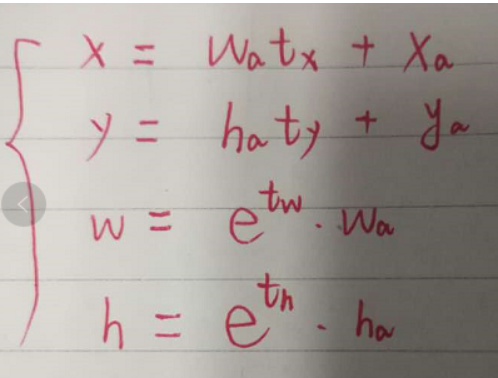 x = wₐtₓ + xₐ
y = hₐt_y + yₐ
w = e^{t_w} · wₐ
h = e^{t_h} · hₐ